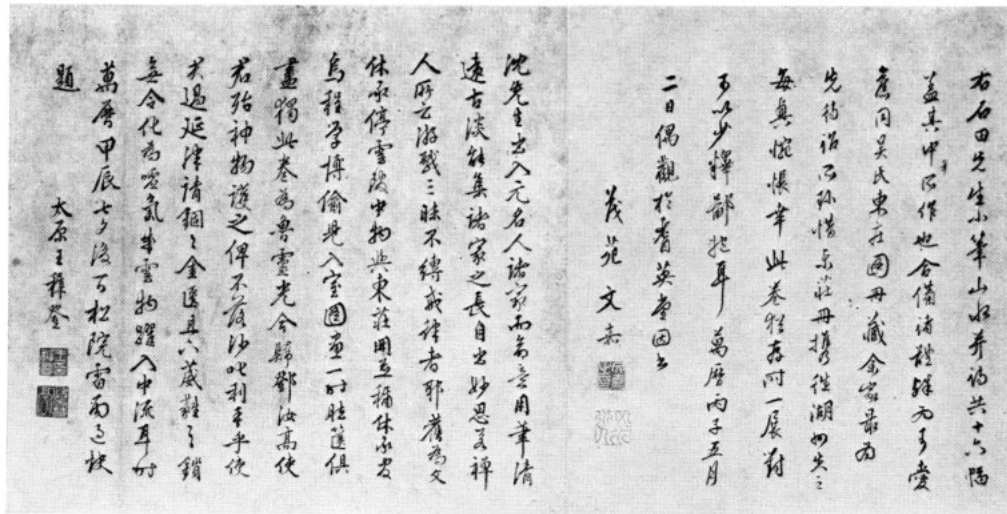 右石田先生小筆山水并詩共十六幅
蓋其中年所作也 備諸體 可愛
舊同吳氏東莊圖冊藏余家最為
先待詔所珍惜東莊冊攜往湖州失之
每 惋悵幸此卷猶存時一展對
可以少 鄙抱耳 萬曆丙子五月
二日偶觀於耆英堂因書
茂苑文嘉
沈先生出入元名人諸家而命意用筆清
遠古淡能集諸家之長自出妙思若禪
人所云游戲三昧不縛戒律者耶舊為文
休承停雲 中物與東莊圖並稱休承官
烏程學博偷兒入室圖画一時胠篋俱
盡獨此卷為魯靈光今歸鄒汝高使
君殆神物護之俾不落沙吒利手乎使
君過延津請錮之金匱且 葳 之鎖
無令化為噓氣乘雲物躍入中流耳時
萬曆甲辰七夕後百松院雷雨過快
題
太原王穉登